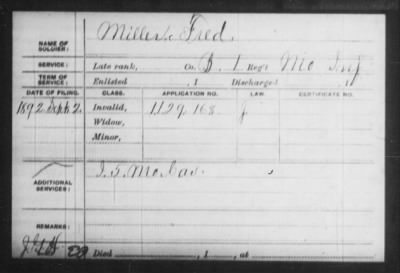 NAME OF SOLDIER: Miller, Fred.
SERVICE: Late rank, Co. B. 1 Reg't Mo Inf
TERM OF SERVICE: Enlisted , 1 Discharged , 1
DATE OF FILING. CLASS. APPLICATION NO. LAW. CERTIFICATE NO.
1892 Sept. 2. Invalid, 1129.168.
Widow,
Minor,
ADDITIONAL SERVICES: Mo. Cav.
REMARKS:
Died , 1 , at